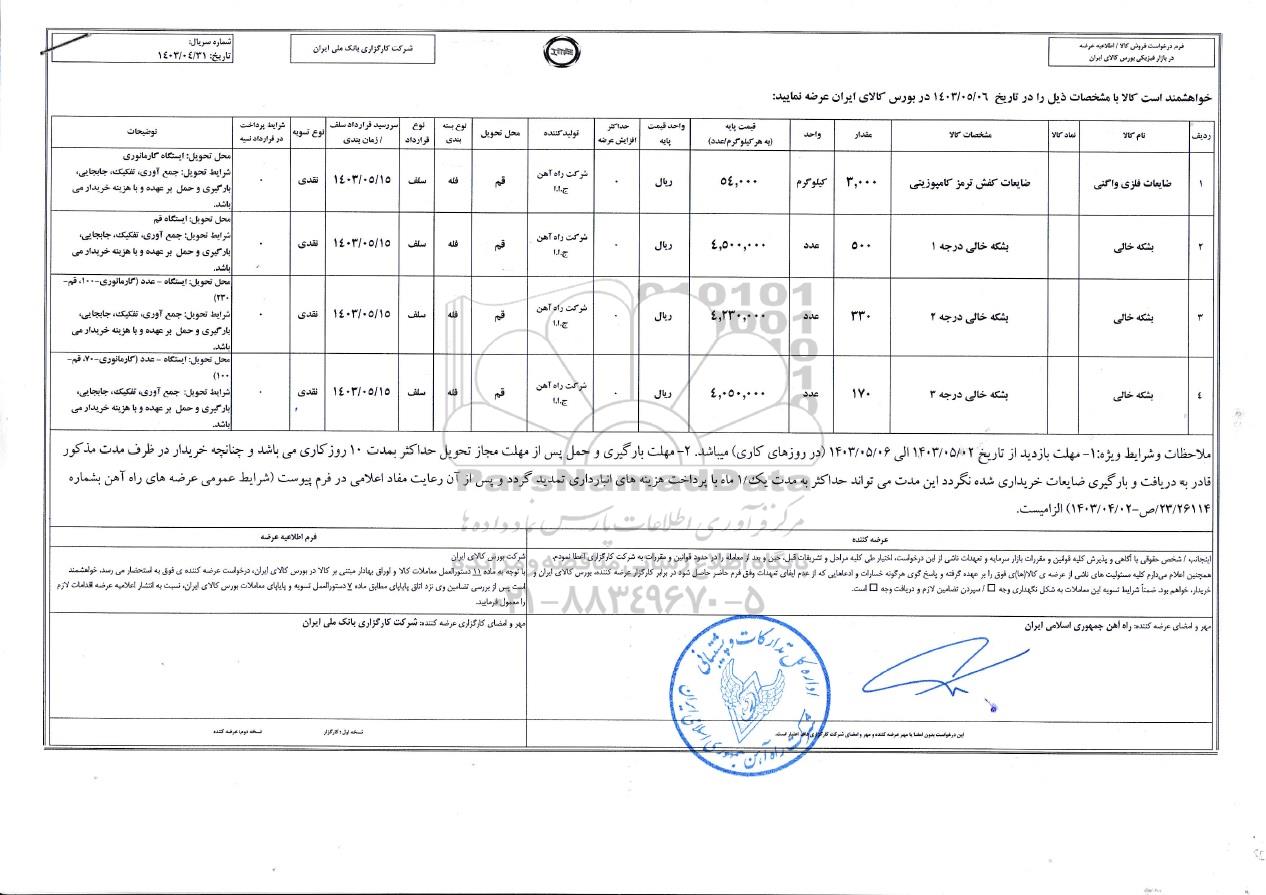 فرم درخواست فروش کالا / اطلاعیه عرضه
در بازار فیزیکی بورس کالای ایران
شرکت کارگزاری بانک ملی ایران
شماره سریال:
تاریخ: ۱۴۰۳/۰۴/۳۱
خواهشمند است کالا با مشخصات ذیل را در تاریخ ۱۴۰۳/۰۵/۰۶ در بورس کالای ایران عرضه نمایید:
ردیف | نام کالا | نماد کالا | مشخصات کالا | مقدار | واحد | قیمت پایه (به هر کیلوگرم/عدد) | واحد قیمت پایه | حداکثر افزایش عرضه | تولیدکننده | محل تحویل | نوع بسته بندی | نوع قرارداد | سررسید قرارداد سلف / زمان بندی | نوع تسویه | شرایط پرداخت در قرارداد نسیه | توضیحات
۱ | ضایعات فلزی واگنی | ضایعات کفش ترمز کامپوزیتی | ۳,۰۰۰ | کیلوگرم | ۵۴,۰۰۰ | ریال | ۰ | شرکت راه آهن ج.ا.ا | قم | فله | سلف | ۱۴۰۳/۰۵/۱۵ | نقدی | ۰ | محل تحویل: ایستگاه گارمانوری
شرایط تحویل: جمع آوری، تفکیک، جابجایی، بارگیری و حمل بر عهده و با هزینه خریدار می باشد.
۲ | بشکه خالی | بشکه خالی درجه ۱ | ۵۰۰ | عدد | ۴,۵۰۰,۰۰۰ | ریال | ۰ | شرکت راه آهن ج.ا.ا | قم | فله | سلف | ۱۴۰۳/۰۵/۱۵ | نقدی | ۰ | محل تحویل: ایستگاه قم
شرایط تحویل: جمع آوری، تفکیک، جابجایی، بارگیری و حمل بر عهده و با هزینه خریدار می باشد.
۳ | بشکه خالی | بشکه خالی درجه ۲ | ۳۳۰ | عدد | ۴,۲۳۰,۰۰۰ | ریال | ۰ | شرکت راه آهن ج.ا.ا | قم | فله | سلف | ۱۴۰۳/۰۵/۱۵ | نقدی | ۰ | محل تحویل: ایستگاه - عدد (گارمانوری-۱۰۰، قم-۲۳۰)
شرایط تحویل: جمع آوری، تفکیک، جابجایی، بارگیری و حمل بر عهده و با هزینه خریدار می باشد.
۴ | بشکه خالی | بشکه خالی درجه ۳ | ۱۷۰ | عدد | ۴,۰۵۰,۰۰۰ | ریال | ۰ | شرکت راه آهن ج.ا.ا | قم | فله | سلف | ۱۴۰۳/۰۵/۱۵ | نقدی | ۰ | محل تحویل: ایستگاه - عدد (گارمانوری-۷۰، قم-۱۰۰)
شرایط تحویل: جمع آوری، تفکیک، جابجایی، بارگیری و حمل بر عهده و با هزینه خریدار می باشد.
ملاحظات وشرایط ویژه:۱- مهلت بازدید از تاریخ ۱۴۰۳/۰۵/۰۲ الی ۱۴۰۳/۰۵/۰۶ (در روزهای کاری) میباشد. ۲- مهلت بارگیری و حمل پس از مهلت مجاز تحویل حداکثر بمدت ۱۰ روزکاری می باشد و چنانچه خریدار در ظرف مدت مذکور
قادر به دریافت و بارگیری ضایعات خریداری شده نگردد این مدت می تواند حداکثر به مدت یک/۱ ماه با پرداخت هزینه های انبارداری تمدید گردد و پس از آن رعایت مفاد اعلامی در فرم پیوست (شرایط عمومی عرضه های راه آهن بشماره
۲۳/۲۶۱۱۴/ص-۱۴۰۳/۰۴/۰۲) الزامیست.
ParsNamadData
مرکز فرآوری اطلاعات پارس نماد داده ها
پایگاه اطلاع رسانی مناقصه و مزایده
۰۲۱-۸۸۳۴۹۶۷۰-۵
عرضه کننده
اینجانب / شخص حقوقی با آگاهی و پذیرش کلیه قوانین و مقررات بازار سرمایه و تعهدات ناشی از این درخواست، اختیار طی کلیه مراحل و تشریفات قبل، حین و بعد از معامله را در حدود قوانین و مقررات به شرکت کارگزاری اعطا نمودم.
همچنین اعلام می‌دارم کلیه مسئولیت های ناشی از عرضه ی کالا(ها)ی فوق را بر عهده گرفته و پاسخ گوی هرگونه خسارات و ادعاهایی که از عدم ایفای تعهدات وفق فرم حاضر حاصل شود در برابر کارگزار عرضه کننده، بورس کالای ایران و
خریدار، خواهم بود. ضمناً شرایط تسویه این معاملات به شکل نگهداری وجه □ / سپردن تضامین لازم و دریافت وجه □ است.
فرم اطلاعیه عرضه
شرکت بورس کالای ایران
با توجه به ماده ۱۱ دستورالعمل معاملات کالا و اوراق بهادار مبتنی بر کالا در بورس کالای ایران، درخواست عرضه کننده ی فوق به استحضار می رسد، خواهشمند
است پس از بررسی تضامین وی نزد اتاق پایاپای مطابق ماده ۷ دستورالعمل تسویه و پایاپای معاملات بورس کالای ایران، نسبت به انتشار اعلامیه عرضه اقدامات لازم
را معمول فرمایید.
مهر و امضای عرضه کننده: راه آهن جمهوری اسلامی ایران
مهر و امضای کارگزاری عرضه کننده: شرکت کارگزاری بانک ملی ایران
اداره کل تدارکات و پشتیبانی
شرکت راه آهن جمهوری اسلامی ایران
این درخواست بدون امضا یا مهر عرضه کننده و مهر و امضای شرکت کارگزاری فاقد اعتبار است.
نسخه اول: کارگزار
نسخه دوم: عرضه کننده